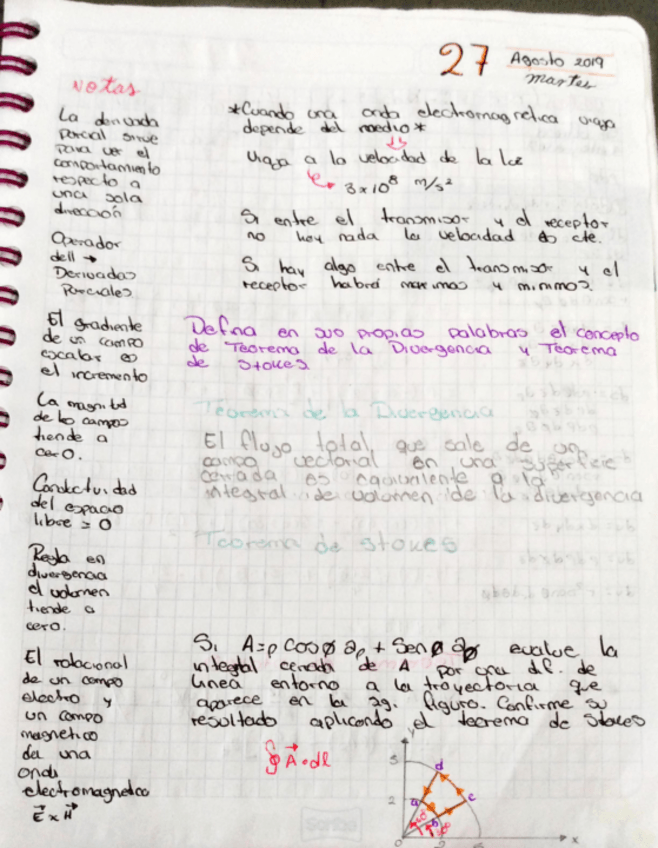 27 Agosto 2019
martes
notas
La derivada
parcial sirve
para ver el
comportamiento
respecto a
una sola
dirección
Operador
dell →
Derivadas
Parciales
El gradiente
de un campo
escalar es
el incremento
La magnitud
de los campos
tiende a
cero.
Conductividad
del espacio
libre = 0
Regla en
divergencia
el volumen
tiende a
cero.
El rotacional
de un campo
electro y
un campo
magnetico
da una
onda
electromagnetica
E x H
*Cuando una onda electromagnetica viaja
depende del medio*
viaja a la velocidad de la luz
3x10⁸ m/s²
Si entre el transmisor y el receptor
no hay nada la velocidad es cte.
Si hay algo entre el transmisor y el
receptor habrá maximos y minimos.
Defina en sus propias palabras el concepto
de Teorema de la Divergencia y Teorema
de Stokes
Teorema de la Divergencia
El flujo total que sale de un
campo vectorial en una superficie
cerrada es equivalente a la
integral de volumen de la divergencia
Teorema de Stokes
Si A=ρ Cosø aρ + Senø aø evalue la
integral cerrada de A por una dif. de
linea entorno a la trayectoria que
aparece en la sg. figura. Confirme su
resultado aplicando el teorema de Stokes
∮ A·dl
y
5
d
2
a
c
b
60°
30°
0
2
x